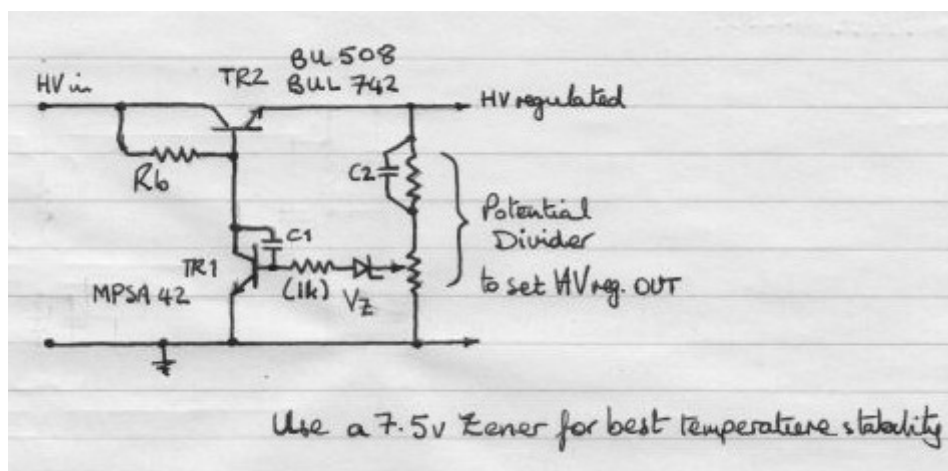 BU 508
TR2 BUL 742
HV in
HV regulated
Rb
C2
Potential
Divider
to set HV reg. OUT
C1
TR1
(1k)
VZ
MPSA 42
Use a 7.5v Zener for best temperature stability